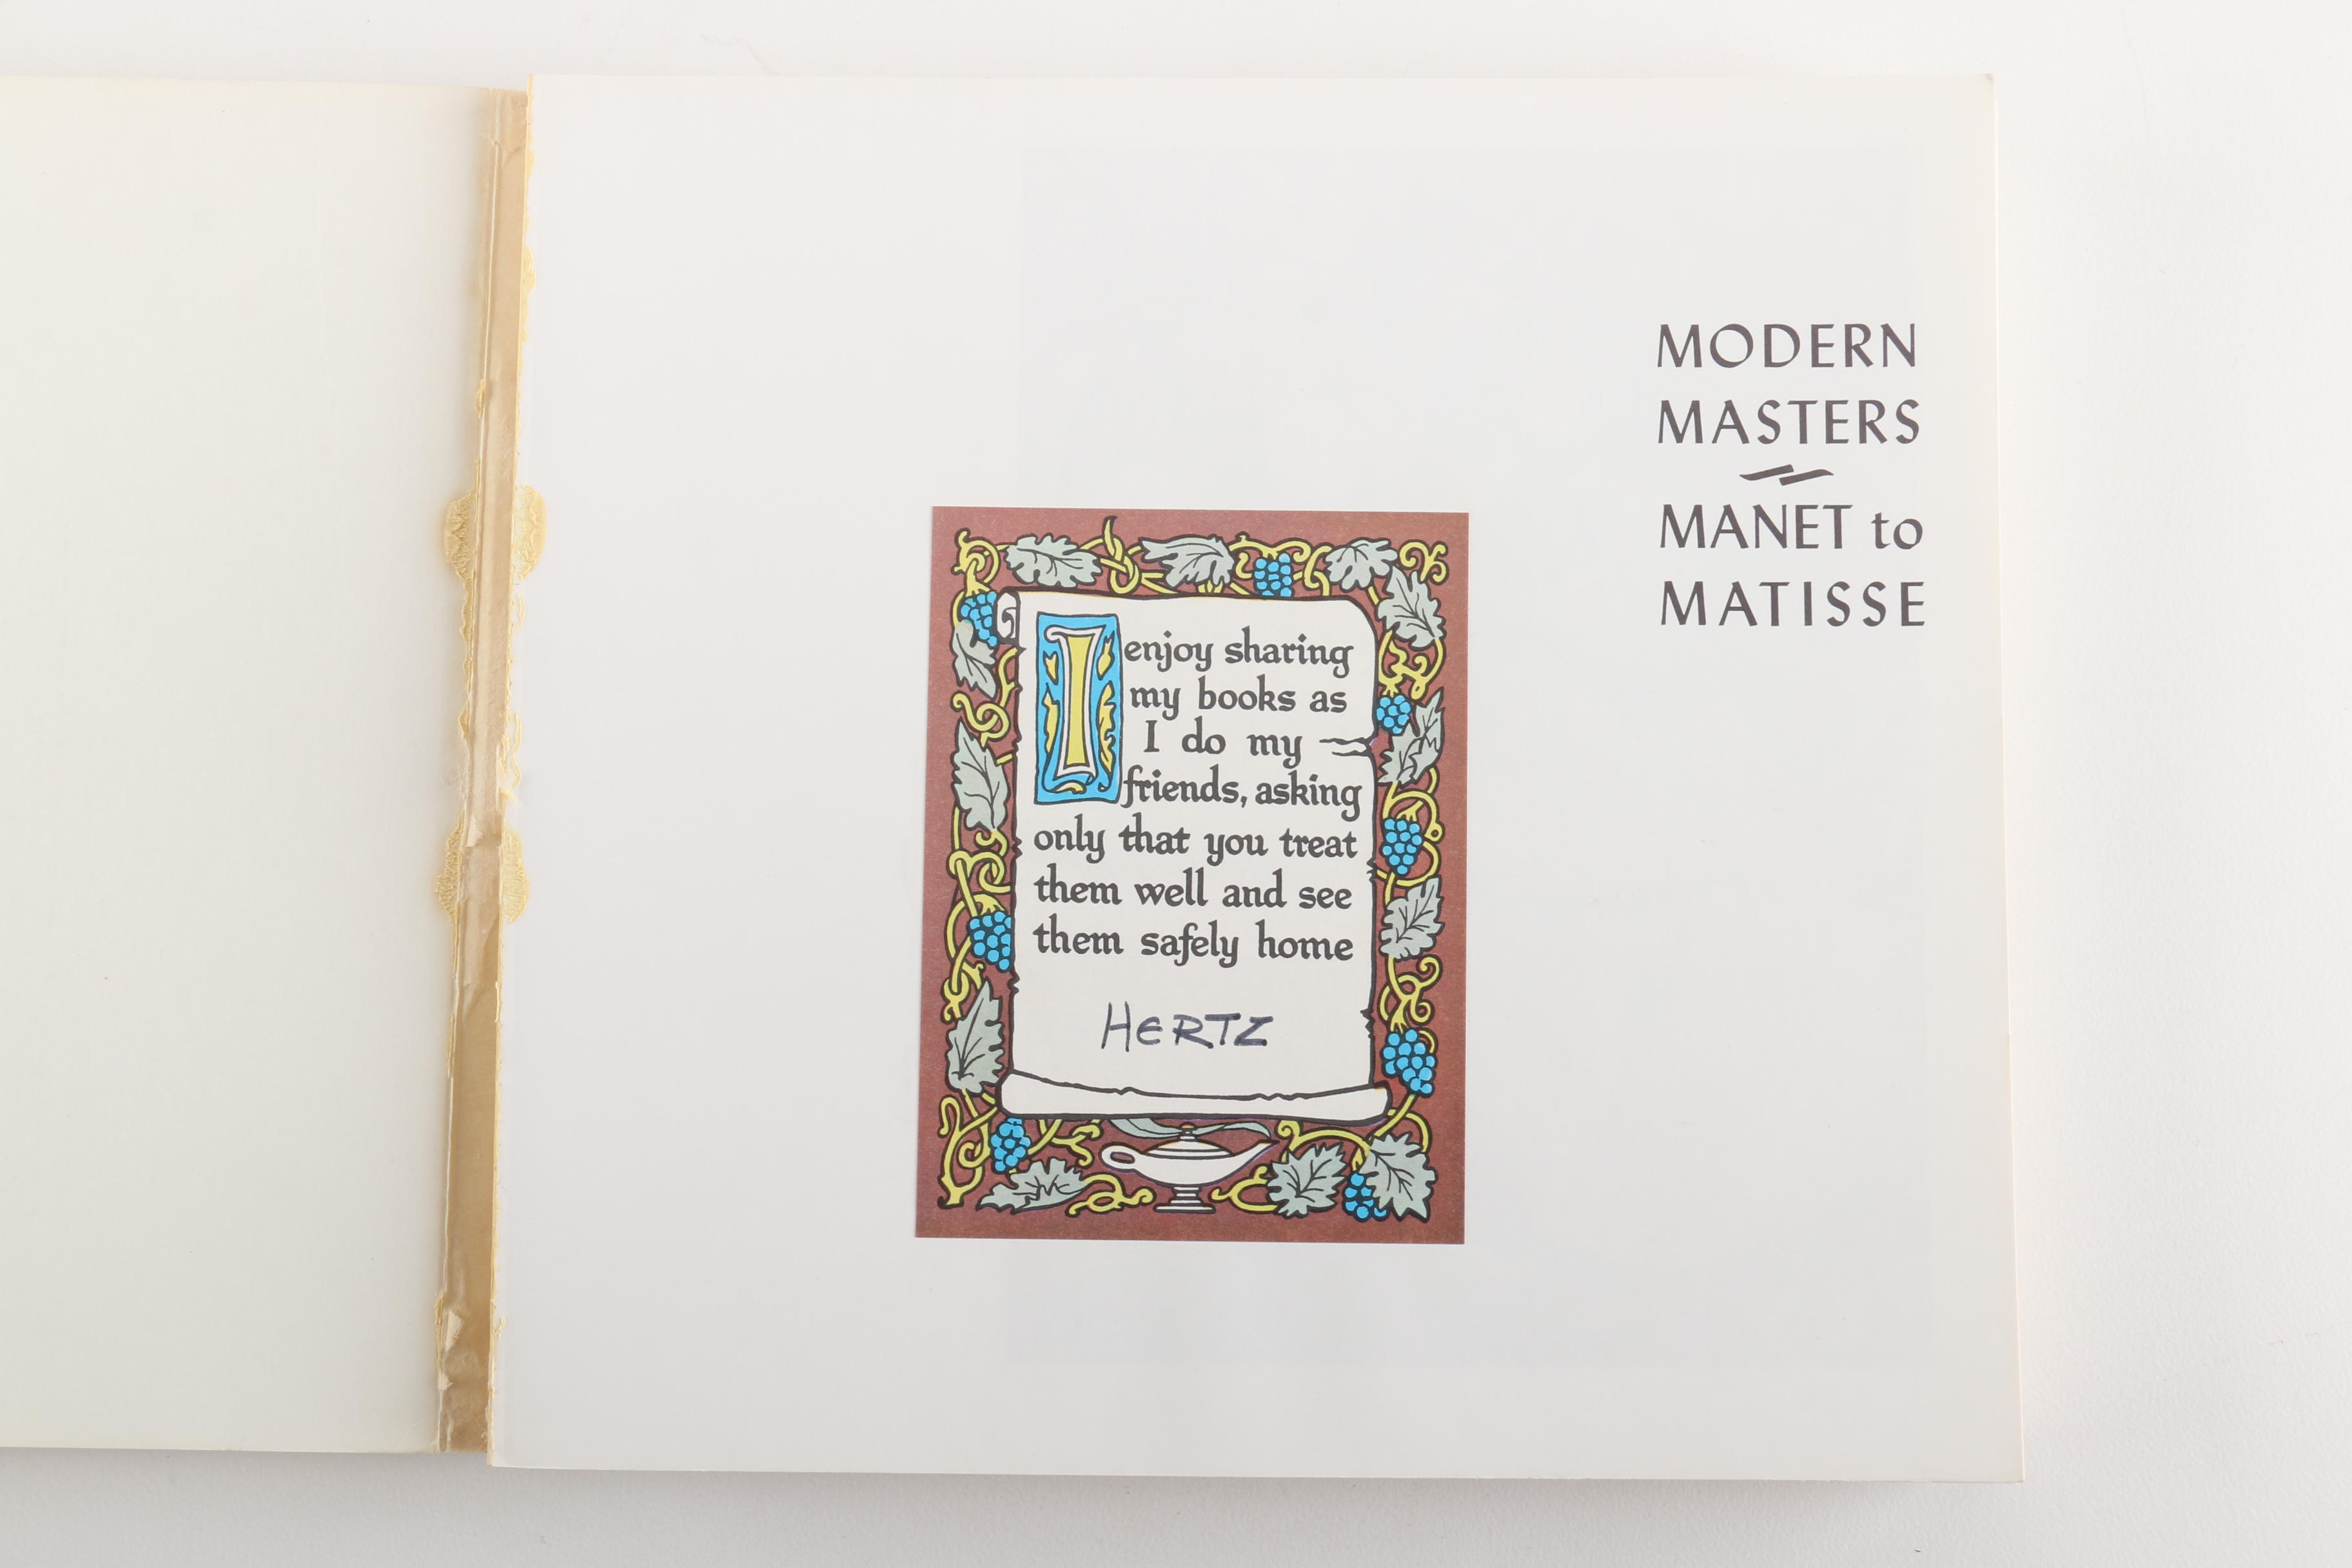 MODERN
MASTERS
MANET to
MATISSE
I enjoy sharing
my books as
I do my
friends, asking
only that you treat
them well and see
them safely home
HERTZ